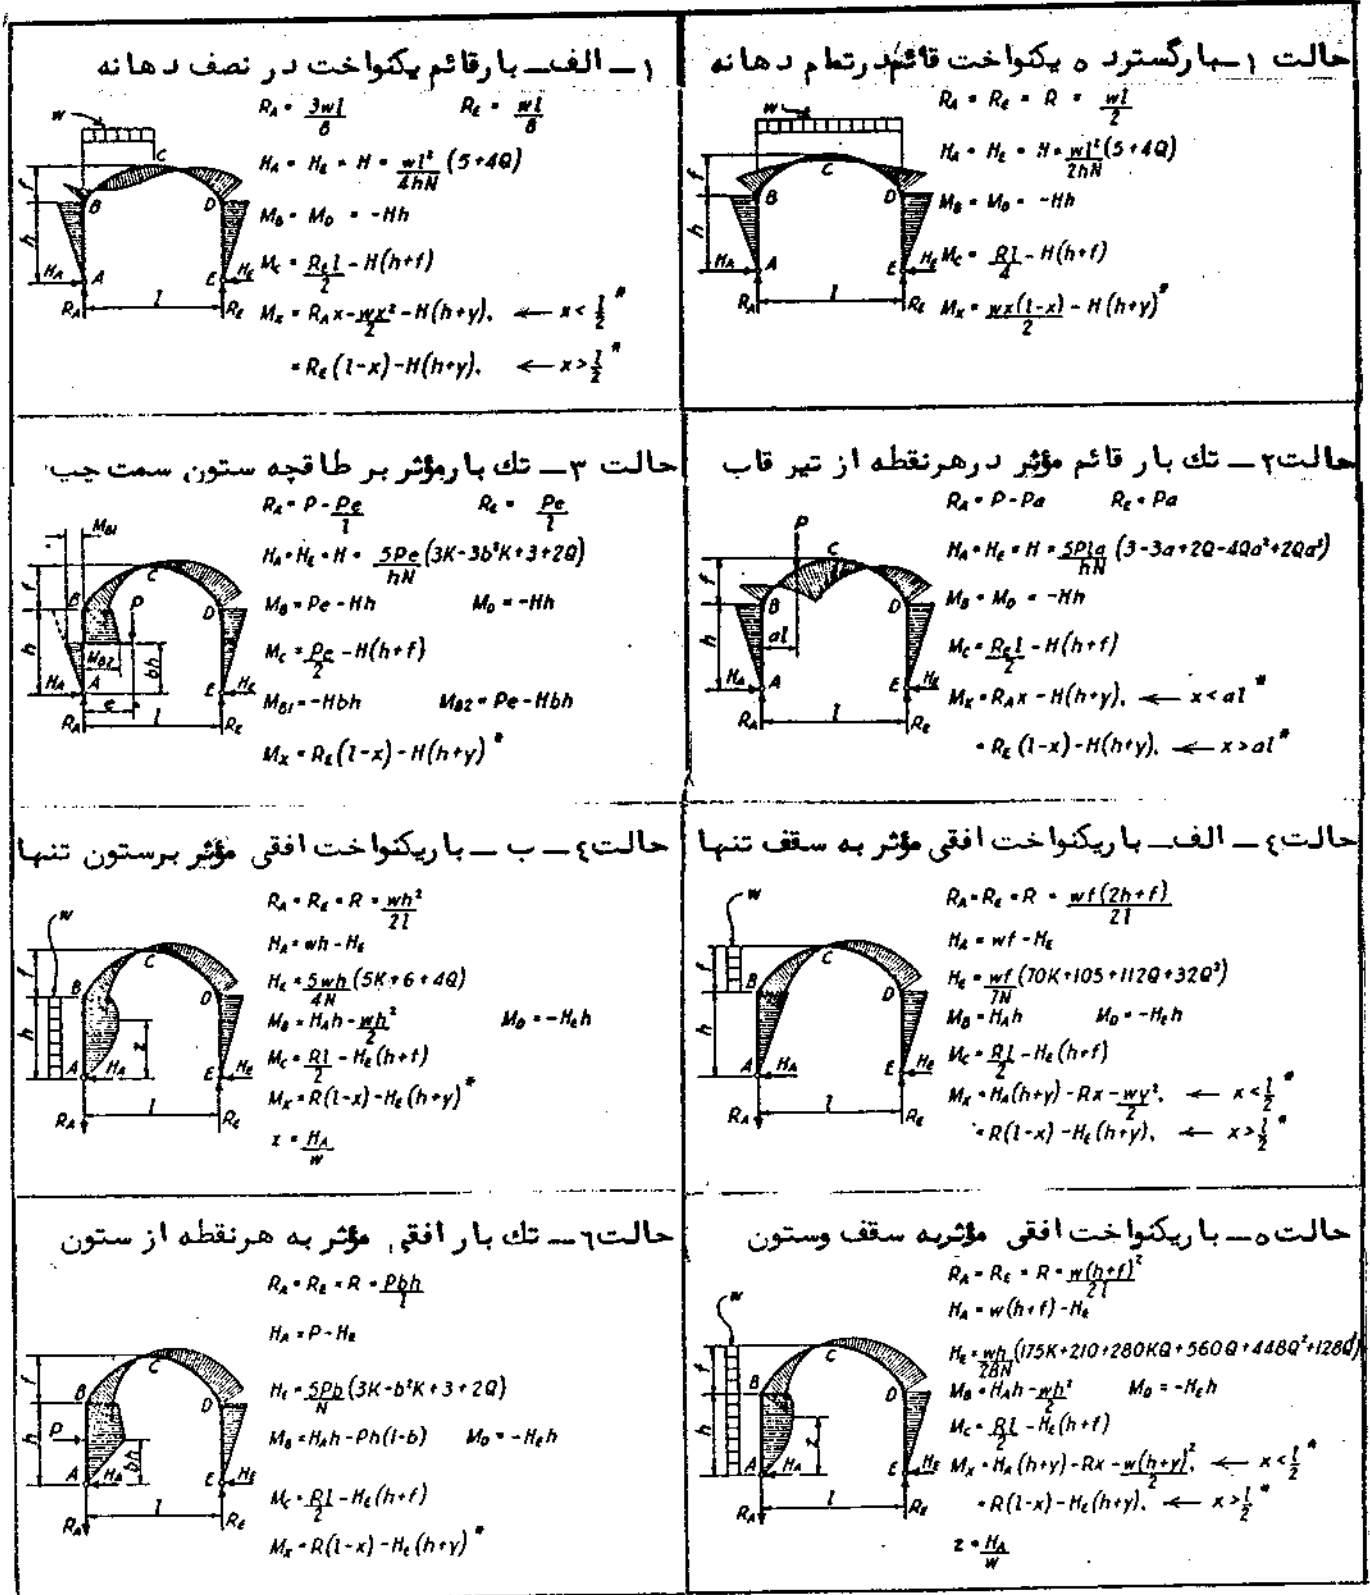 حالت ۱ــ بارگسترده یکنواخت قائم درتمام دهانه
R_A = R_E = R = wl/2
H_A = H_E = H = wl²/2hN (5+4Q)
M_B = M_D = -Hh
M_C = Rl/4 - H(h+f)
M_X = wx(l-x)/2 - H(h+y)*
w
C
f
B
D
h
H_A
A
E
H_E
R_A
l
R_E
۱ــ الف ــ بارقائم یکنواخت در نصف دهانه
R_A = 3wl/8 R_E = wl/8
H_A = H_E = H = wl²/4hN (5+4Q)
M_B = M_D = -Hh
M_C = R_E l/2 - H(h+f)
M_X = R_A x - wx²/2 - H(h+y), ← x < l/2 *
= R_E (l-x) - H(h+y), ← x > l/2 *
w
C
f
B
D
h
H_A
A
E
H_E
R_A
l
R_E
حالت۲ــ تك بار قائم مؤثر درهرنقطه از تیر قاب
R_A = P-Pa R_E = Pa
H_A = H_E = H = 5Pla/hN (3-3a+2Q-4Qa²+2Qa³)
M_B = M_D = -Hh
M_C = R_E l/2 - H(h+f)
M_X = R_A x - H(h+y), ← x < al *
= R_E (l-x) - H(h+y), ← x > al *
P
C
f
B
D
h
al
H_A
A
E
H_E
R_A
l
R_E
حالت ۳ــ تك بارمؤثر بر طاقچه ستون سمت چپ
R_A = P - Pe/l R_E = Pe/l
H_A = H_E = H = 5Pe/hN (3K-3b²K+3+2Q)
M_B = Pe - Hh M_D = -Hh
M_C = Pe/2 - H(h+f)
M_B1 = -Hbh M_B2 = Pe-Hbh
M_X = R_E (l-x) - H(h+y)*
M_B1
C
f
B
P
D
h
M_B2
bh
H_A
A
e
E
H_E
R_A
l
R_E
حالت٤ــ الف ــ باریکنواخت افقی مؤثر به سقف تنها
R_A = R_E = R = wf(2h+f)/2l
H_A = wf - H_E
H_E = wf/7N (70K+105+112Q+32Q²)
M_B = H_A h M_D = -H_E h
M_C = Rl/2 - H_E (h+f)
M_X = H_A (h+y) - Rx - wy²/2, ← x < l/2 *
= R(l-x) - H_E (h+y), ← x > l/2 *
w
C
f
B
D
h
A
H_A
E
H_E
R_A
l
R_E
حالت٤ــ ب ــ باریکنواخت افقی مؤثر برستون تنها
R_A = R_E = R = wh²/2l
H_A = wh - H_E
H_E = 5wh/4N (5K+6+4Q)
M_B = H_A h - wh²/2 M_D = -H_E h
M_C = Rl/2 - H_E (h+f)
M_X = R(l-x) - H_E (h+y)*
z = H_A/w
w
C
f
B
D
h
z
A
H_A
E
H_E
R_A
l
R_E
حالت٥ــ باریکنواخت افقی مؤثربه سقف وستون
R_A = R_E = R = w(h+f)²/2l
H_A = w(h+f) - H_E
H_E = wh/28N (175K+210+280KQ+560Q+448Q²+128Q³)
M_B = H_A h - wh²/2 M_D = -H_E h
M_C = Rl/2 - H_E (h+f)
M_X = H_A (h+y) - Rx - w(h+y)²/2, ← x < l/2 *
= R(l-x) - H_E (h+y), ← x > l/2 *
z = H_A/w
w
C
f
B
D
h
z
A
H_A
E
H_E
R_A
l
R_E
حالت٦ــ تك بار افقی مؤثر به هرنقطه از ستون
R_A = R_E = R = Pbh/l
H_A = P - H_E
H_E = 5Pb/N (3K-b²K+3+2Q)
M_B = H_A h - Ph(1-b) M_D = -H_E h
M_C = Rl/2 - H_E (h+f)
M_X = R(l-x) - H_E (h+y)*
C
f
B
D
P
h
bh
A
H_A
E
H_E
R_A
l
R_E